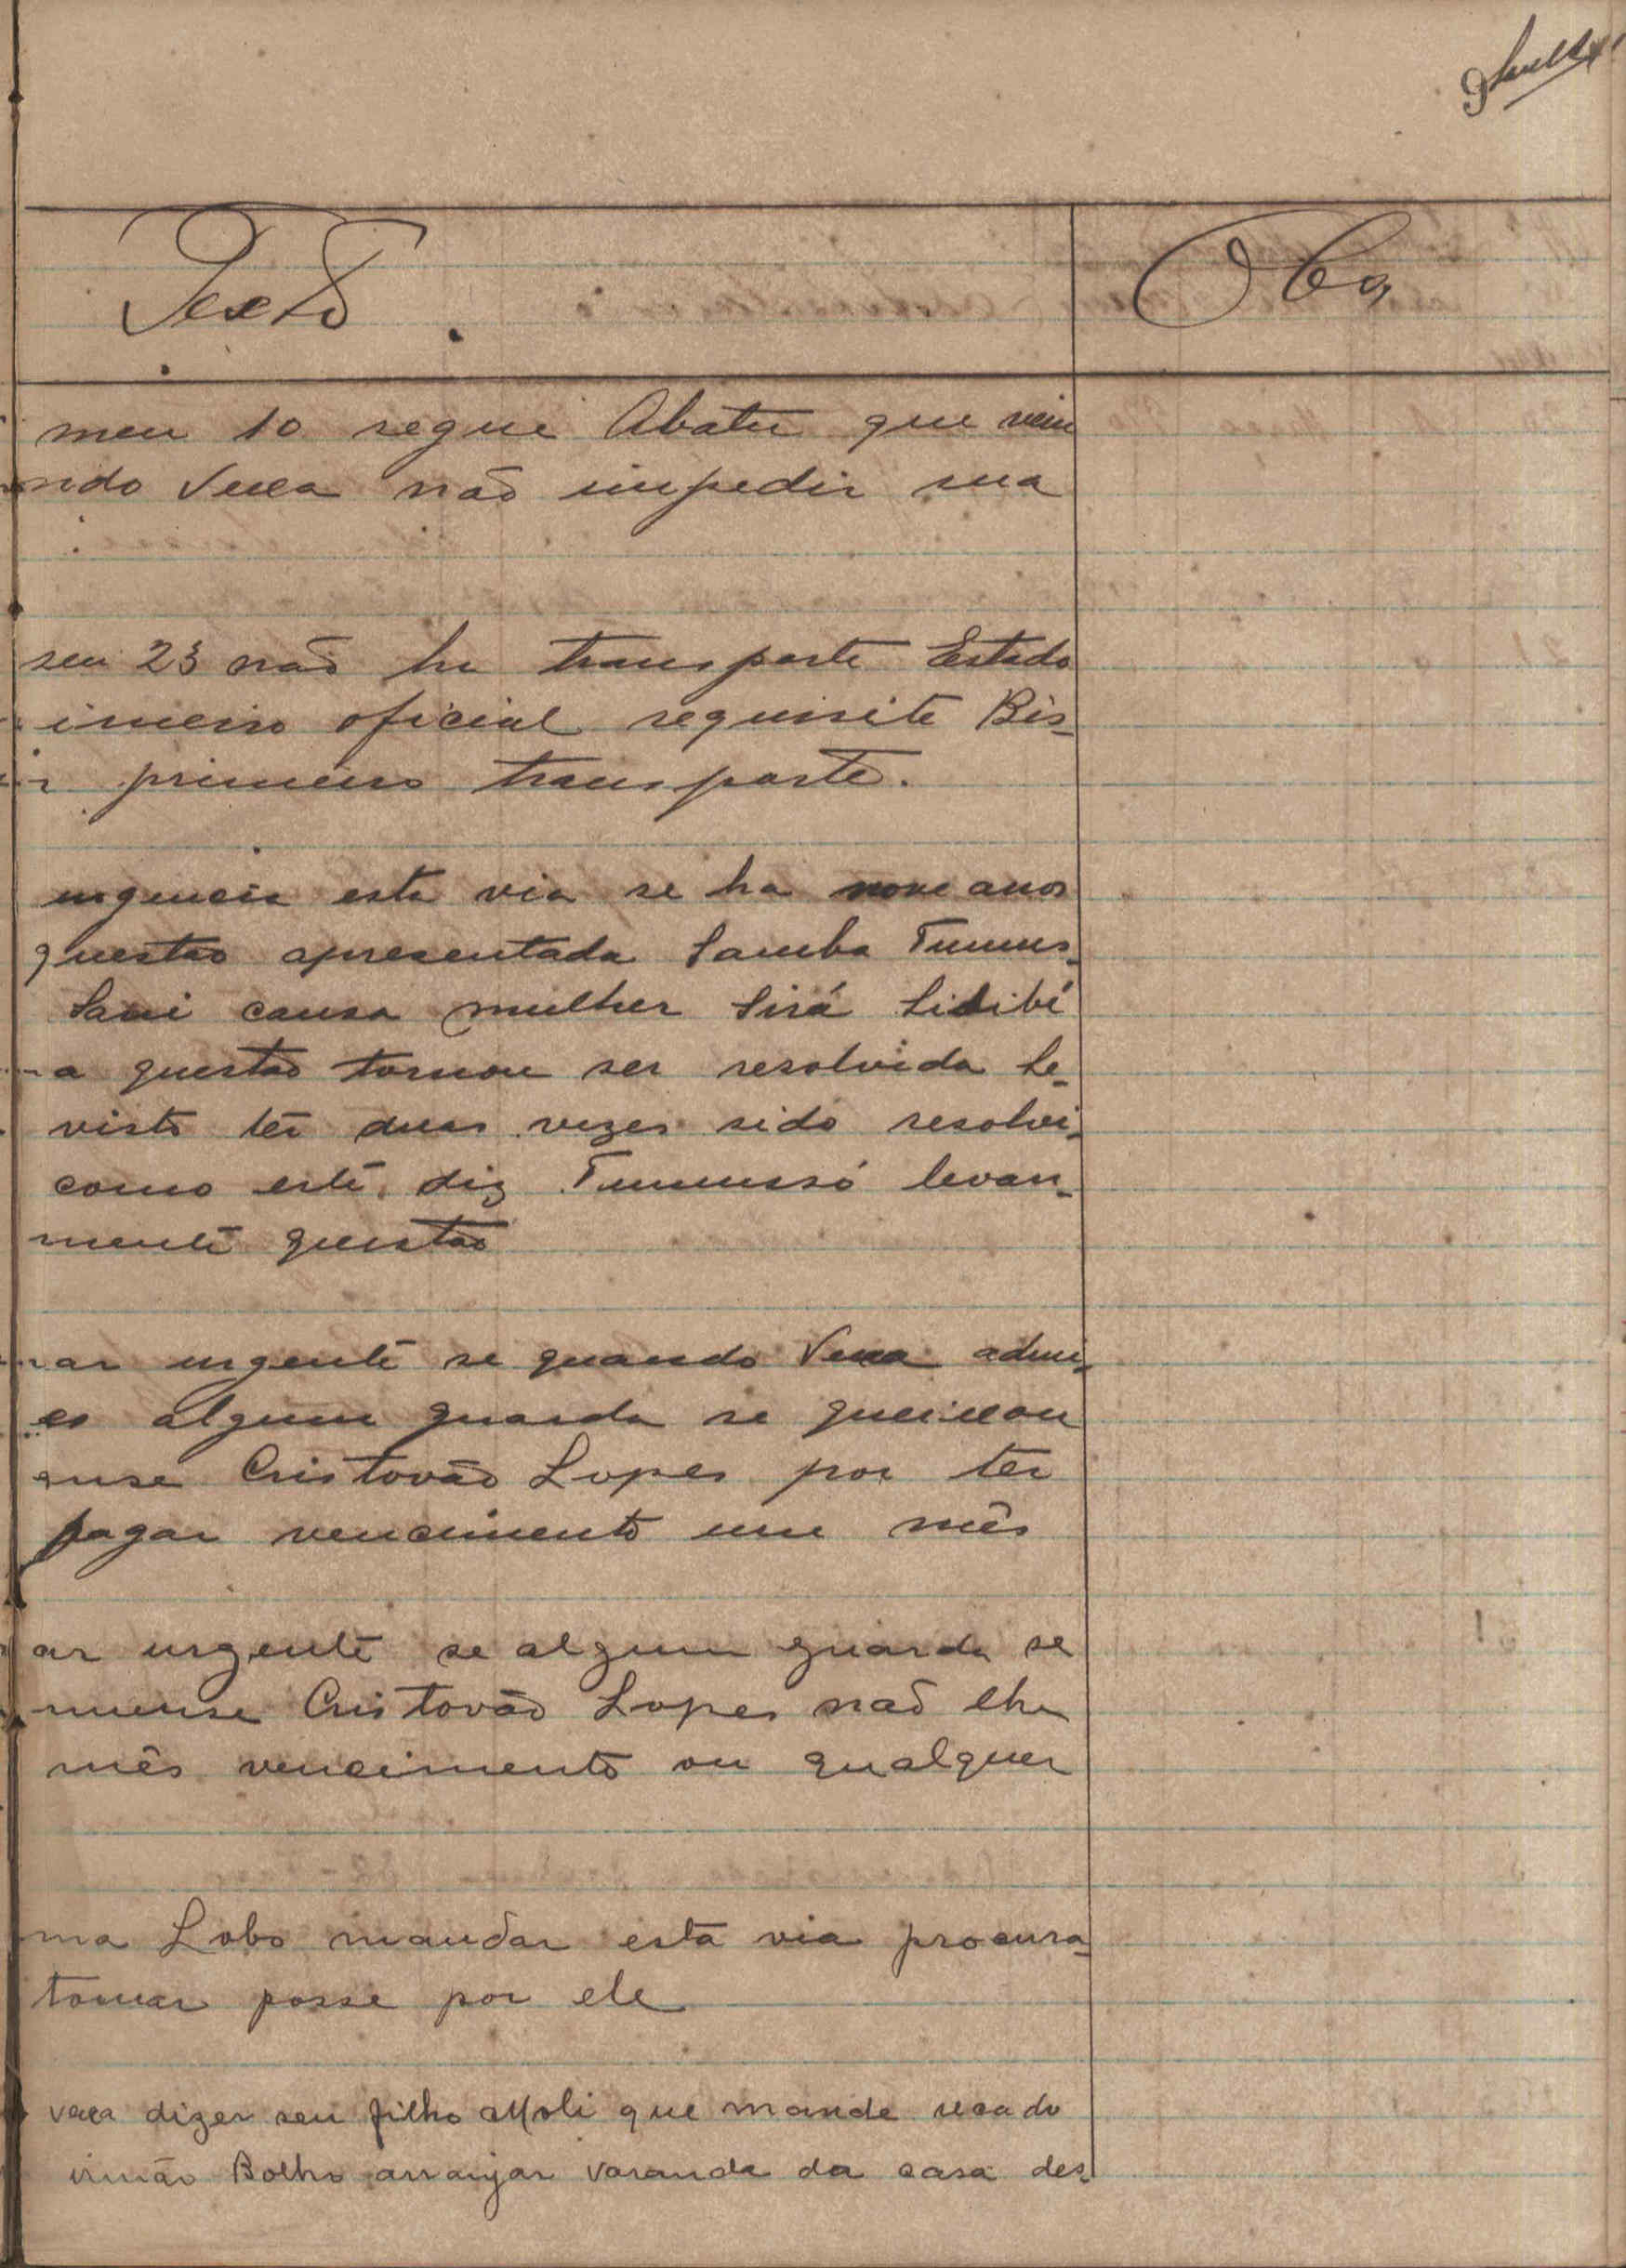 Texto
Obs
meu 10 segue Abatu que vem
ndo Vexa não impedir sua
seu 23 não ha transporte Estado
imeiro oficial requisite Bis-
primeiro transporte.
urgencia esta via se ha nove anos
questão apresentada Samba Tumus-
Sani causa mulher Sirá Sidibé
a questão tornou ser resolvida Se-
visto ter duas vezes sido resolvi-
como este diz Tumussó levan-
mente questão
rar urgente se quando Vexa admi-
es algum guarda se queixou
ense Cristovão Lopes por ter
pagar vencimento um mês
ar urgente se algum guarda se
nuense Cristovão Lopes não lhe
mês vencimento ou qualquer
ma Lobo mandar esta via procura-
tomar posse por ele
vexa dizer seu filho Moli que mande recado
irmão Bolho arranjar varanda da casa des-